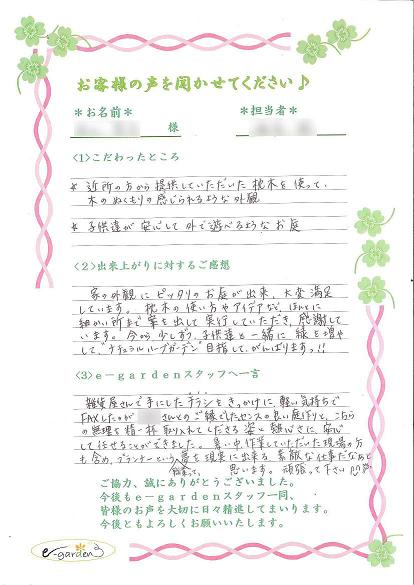 お客様の声を聞かせてください♪
*お名前*
*担当者*
様
<1>こだわったところ
* 近所の方から提供していただいた枕木を使って、
木のぬくもりの感じられるような外観
* 子供達が安心して外で遊べるようなお庭
<2>出来上がりに対するご感想
家の外観にピッタリのお庭が出来、大変満足
しています。枕木の使い方やアイデアなど、ほんとに
細かい所まで案を出して実行していただき、感謝して
います。今から少しずつ、子供達と一緒に緑を増や
して、ナチュラルハーブガーデン目指して、がんばります。!!
<3>e-gardenスタッフへ一言
雑貨屋さんで手にしたチラシをきっかけに、軽い気持ちで
FAXしたのが さんとのご縁でした。センスの良い庭作りと、こちら
の無理を精一杯取り入れてくださる姿と熱心さに、安心
して任せることができました。暑い中作業していただいた現場の方
も含め、プランナーという夢を現実に出来る素敵な仕事だなぁと
思います。頑張って下さい
ご協力、誠にありがとうございました。
今後もe-gardenスタッフ一同、
皆様のお声を大切に日々精進してまいります。
今後ともよろしくお願いいたします。
e-garden